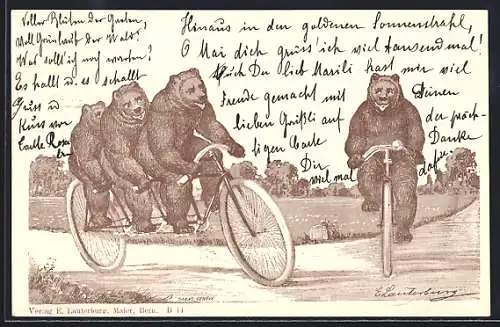 Voller Blüten der Garten,
Voll Grünlaub der Wald!
Was sollt ich noch warten?
Es hallt u. es schallt
Gruss u
Kuss von
Tante Rosa
Hinaus in den goldenen Sonnenstrahl,
O Mai dich grüss' ich viel tausendmal!
Auch Du lieb Marili hast mir viel
Freude gemacht mit Deinen
lieben Grüßli auf der präch-
tigen Carte Danke
Dir viel mal dafür
E. Lauterburg
Verlag E. Lauterburg, Maler, Bern. B 14